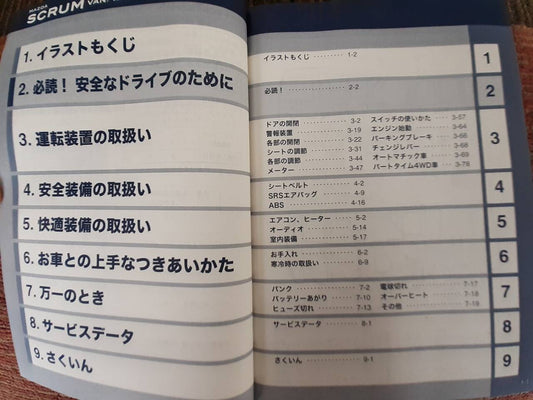 MAZDA
SCRUM VAN
1. イラストもくじ
2. 必読！ 安全なドライブのために
3. 運転装置の取扱い
4. 安全装備の取扱い
5. 快適装備の取扱い
6. お車との上手なつきあいかた
7. 万一のとき
8. サービスデータ
9. さくいん
イラストもくじ ·········· 1-2
1
必読！ ·········· 2-2
2
ドアの開閉 ·········· 3-2
警報装置 ·········· 3-19
各部の開閉 ·········· 3-22
シートの調節 ·········· 3-31
各部の調節 ·········· 3-44
メーター ·········· 3-47
スイッチの使いかた ·· 3-57
エンジン始動 ·········· 3-64
パーキングブレーキ ·· 3-66
チェンジレバー ·········· 3-68
オートマチック車 ····· 3-69
パートタイム4WD車 ··· 3-78
3
シートベルト ·········· 4-2
SRSエアバッグ ·········· 4-9
ABS ·········· 4-16
4
エアコン、ヒーター ···· 5-2
オーディオ ·········· 5-14
室内装備 ·········· 5-17
5
お手入れ ·········· 6-2
寒冷時の取扱い ·········· 6-9
6
パンク ·········· 7-2
バッテリーあがり ····· 7-10
ヒューズ切れ ·········· 7-13
電球切れ ·········· 7-17
オーバーヒート ·········· 7-18
その他 ·········· 7-19
7
サービスデータ ·········· 8-1
8
さくいん ·········· 9-1
9